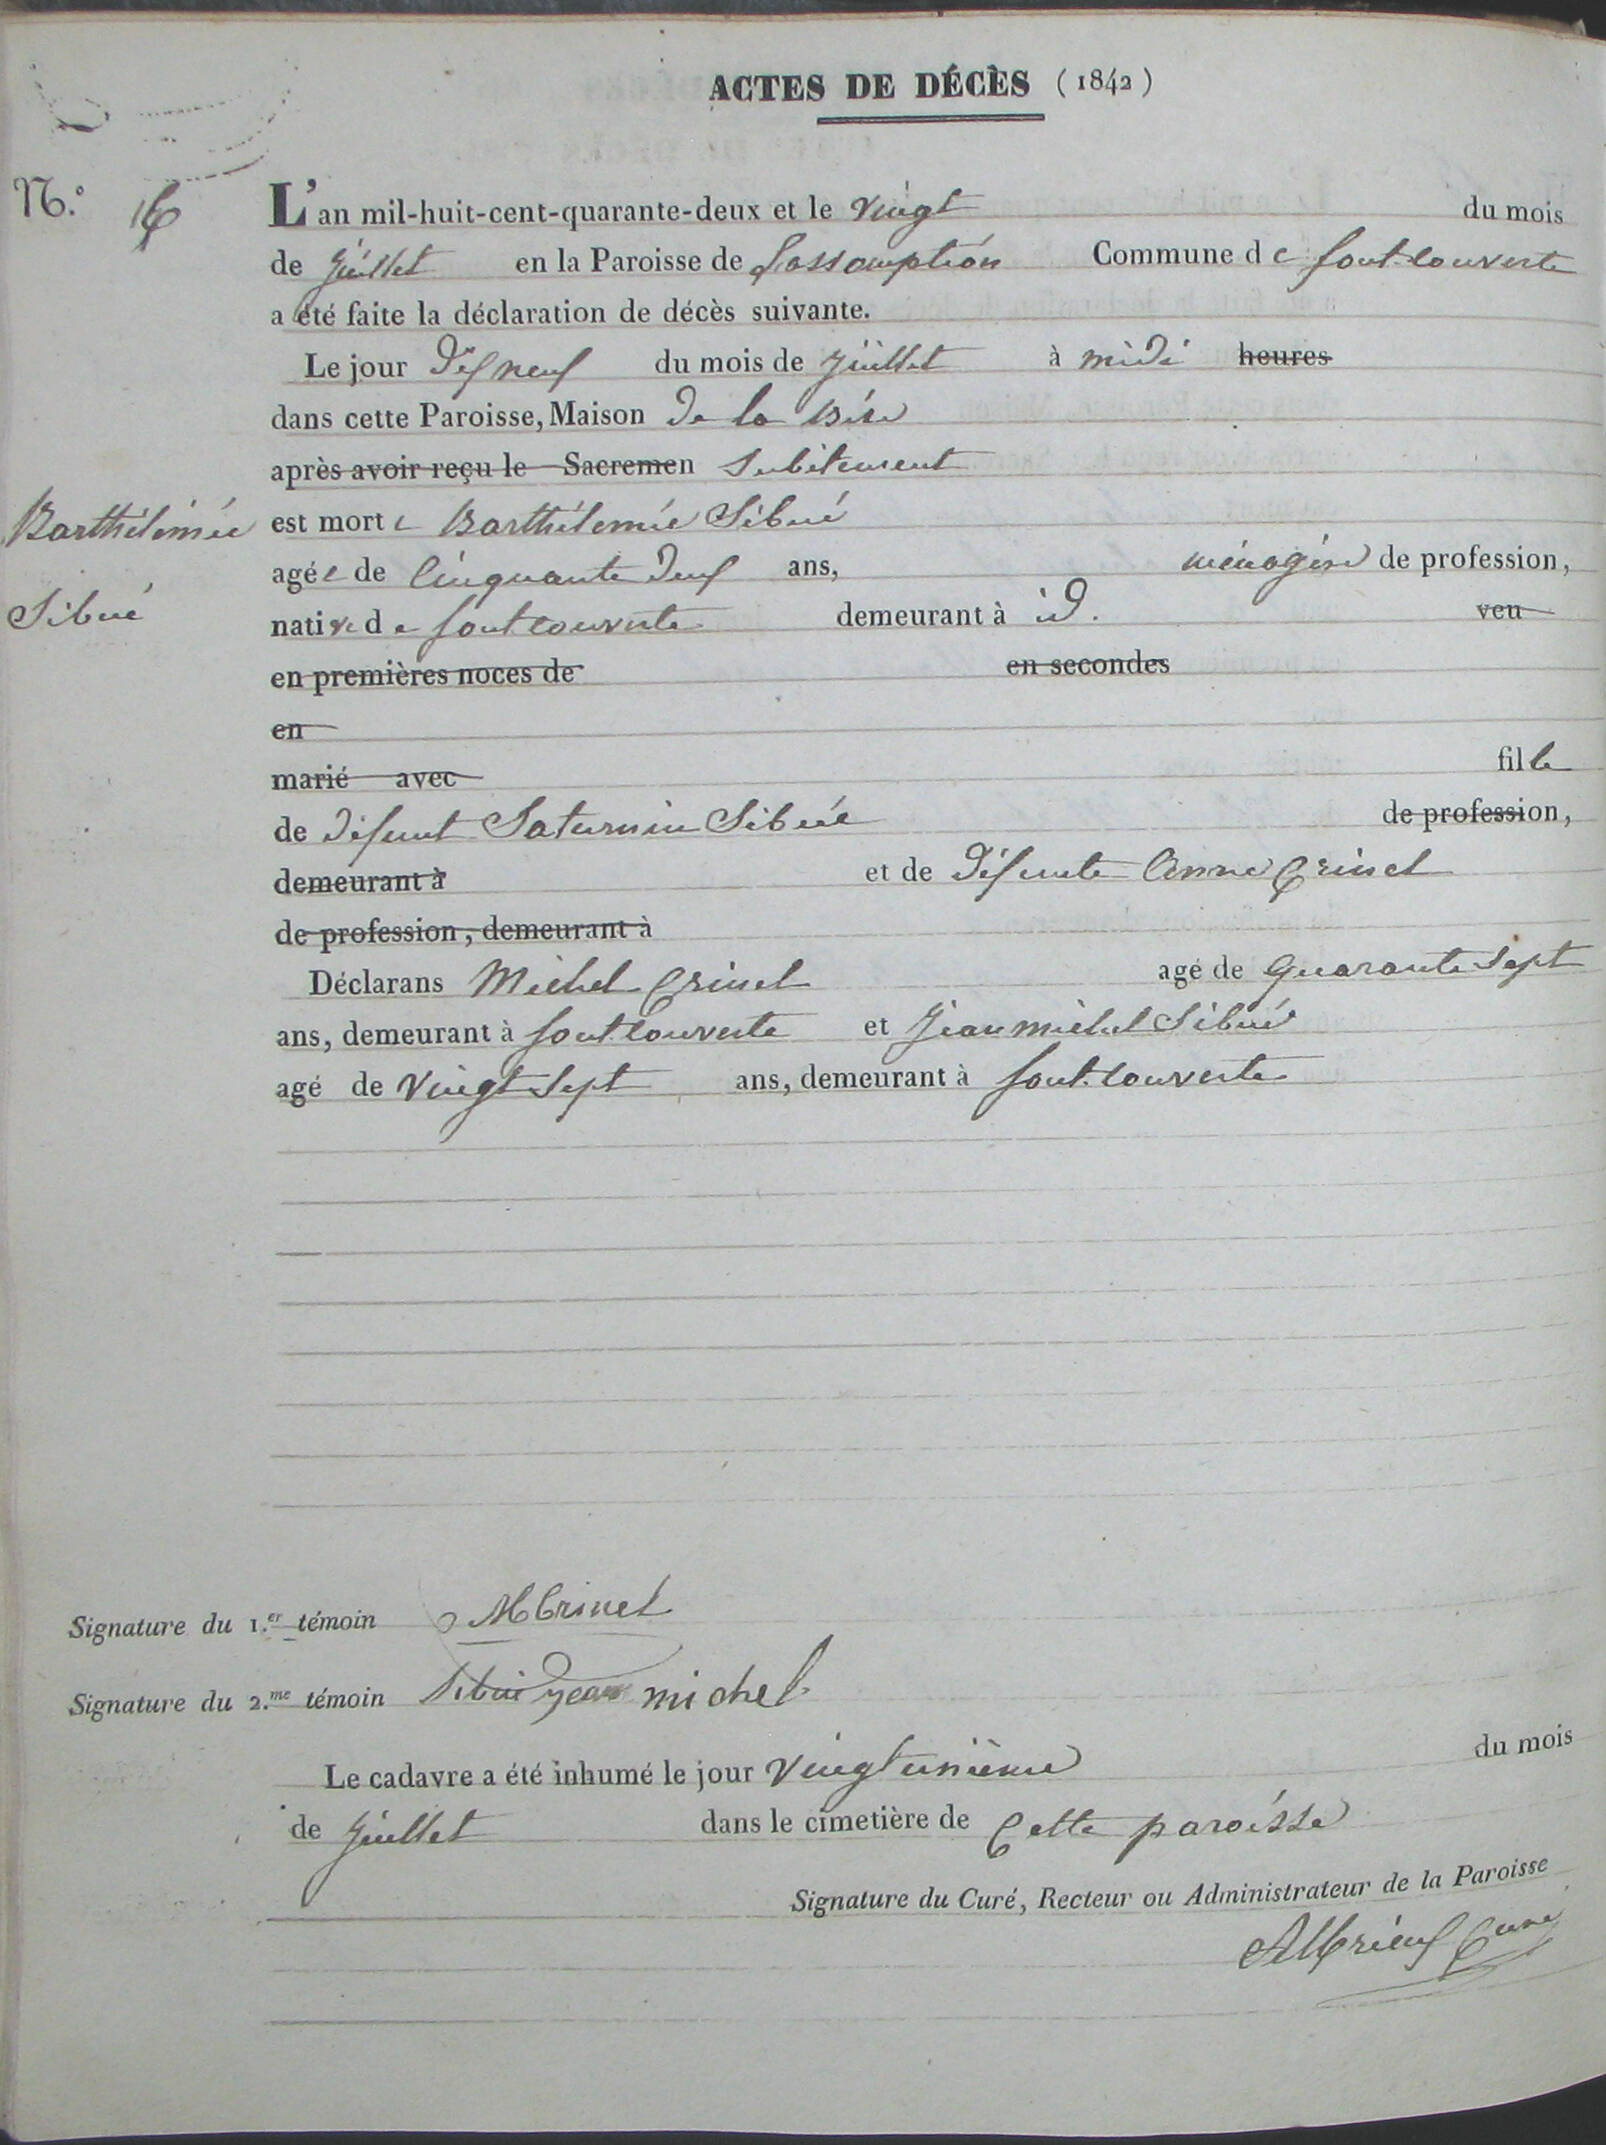 ACTES DE DÉCÈS (1842)
N.° 16
L'an mil-huit-cent-quarante-deux et le vingt du mois
de juillet en la Paroisse de l'assomption Commune de fontcouverte
a été faite la déclaration de décès suivante.
Le jour dixneuf du mois de juillet à midi heures
dans cette Paroisse, Maison de la
après avoir reçu le Sacremen subitement
Barthélémie
est morte Barthélemie Sibué
agée de Cinquante deux ans, ménagère de profession,
Sibué
native de fontcouverte demeurant à id. veu
en premières noces de en secondes
en
marié avec fille
de défunt Saturnin Sibué de profession,
demeurant à et de défunte Anne Crinel
de profession, demeurant à
Déclarans Michel Crinel agé de quarante sept
ans, demeurant à fontcouverte et Jean michel Sibué
agé de vingt sept ans, demeurant à fontcouverte
Signature du 1.er témoin M Crinel
Signature du 2.me témoin Sibué jean michel
Le cadavre a été inhumé le jour vingtunième du mois
de juillet dans le cimetière de cette paroisse
Signature du Curé, Recteur ou Administrateur de la Paroisse
Curé